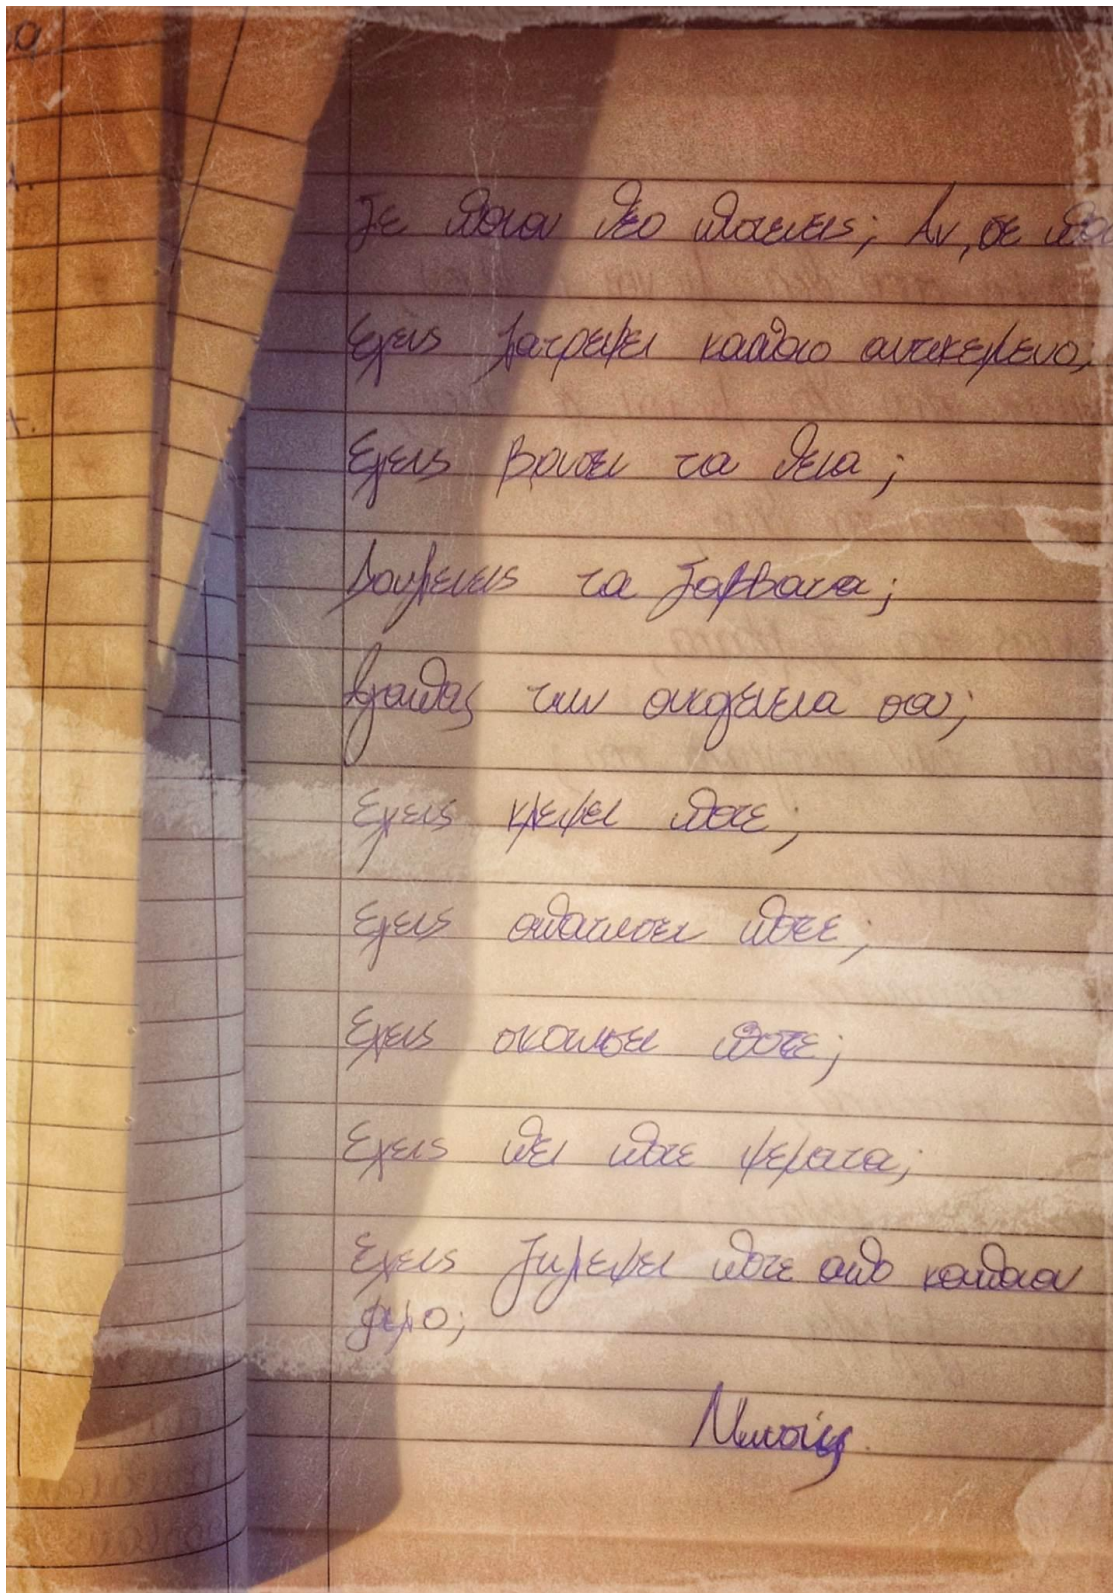 Σε ποιον θεο πιστευεις; Αν, σε
Εχεις λατρεψει καποιο αντικειμενο;
Εχεις βρισει τα θεια;
Δουλευεις τα Σαββατα;
Αγαπας την οικογενεια σου;
Εχεις κλεψει ποτε;
Εχεις απατησει ποτε;
Εχεις σκοτωσει ποτε;
Εχεις πει ποτε ψεματα;
Εχεις ζηλεψει ποτε απο καποιον
φιλο;